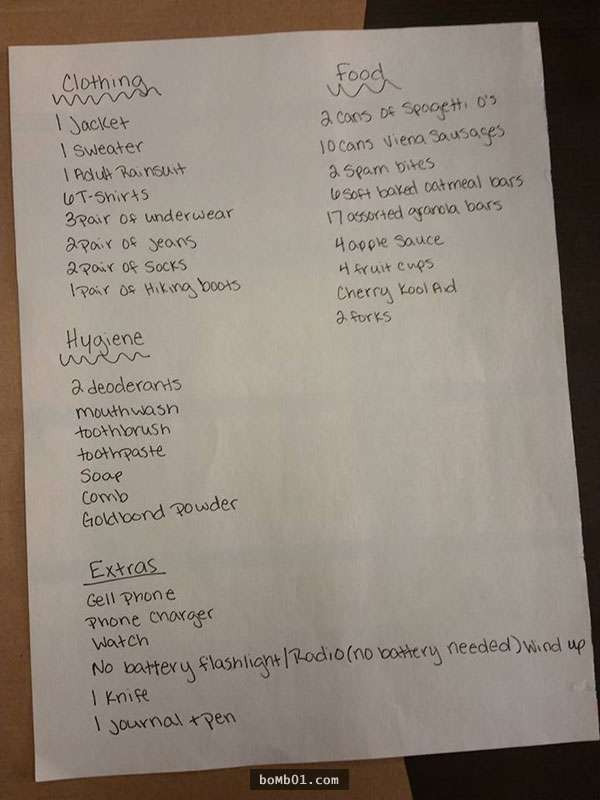 Clothing
1 Jacket
1 Sweater
1 Adult Rainsuit
6 T-Shirts
3 pair of underwear
2 pair of jeans
2 pair of socks
1 pair of Hiking boots
Food
2 cans of Spagetti O's
10 cans Viena Sausages
2 Spam bites
6 soft baked oatmeal bars
17 assorted granola bars
4 apple sauce
4 fruit cups
Cherry Kool Aid
2 forks
Hygiene
2 deoderants
mouthwash
toothbrush
toothpaste
Soap
Comb
Goldbond Powder
Extras
Cell Phone
Phone Charger
Watch
No battery flashlight/Radio (no battery needed) Wind up
1 Knife
1 journal + pen
boMb01.com